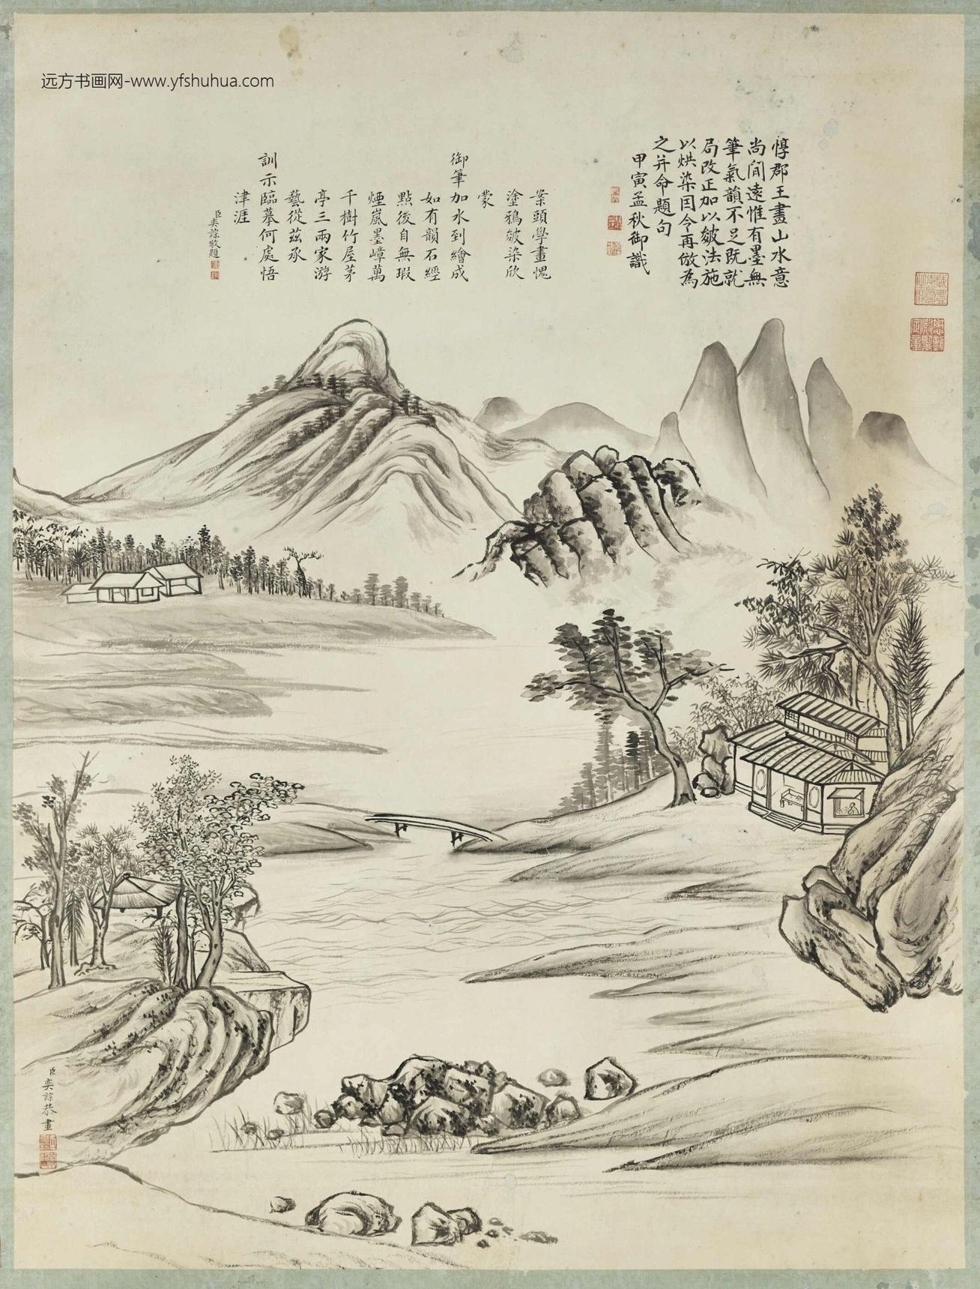 远方书画网-www.yfshuhua.com
惇郡王畫山水意
尚閒遠惟有墨無
筆氣韻不足既就
局改正加以皴法施
以烘染因令再倣為
之并命題句
甲寅孟秋御識
案頭學畫愧
塗鴉皴染欣
蒙
御筆加水到繪成
如有韻石經
點後自無瑕
煙嵐墨嶂萬
千樹竹屋茅
亭三兩家游
藝從茲承
訓示臨摹何處悟
津涯
臣奕誴敬題
臣奕誴恭畫